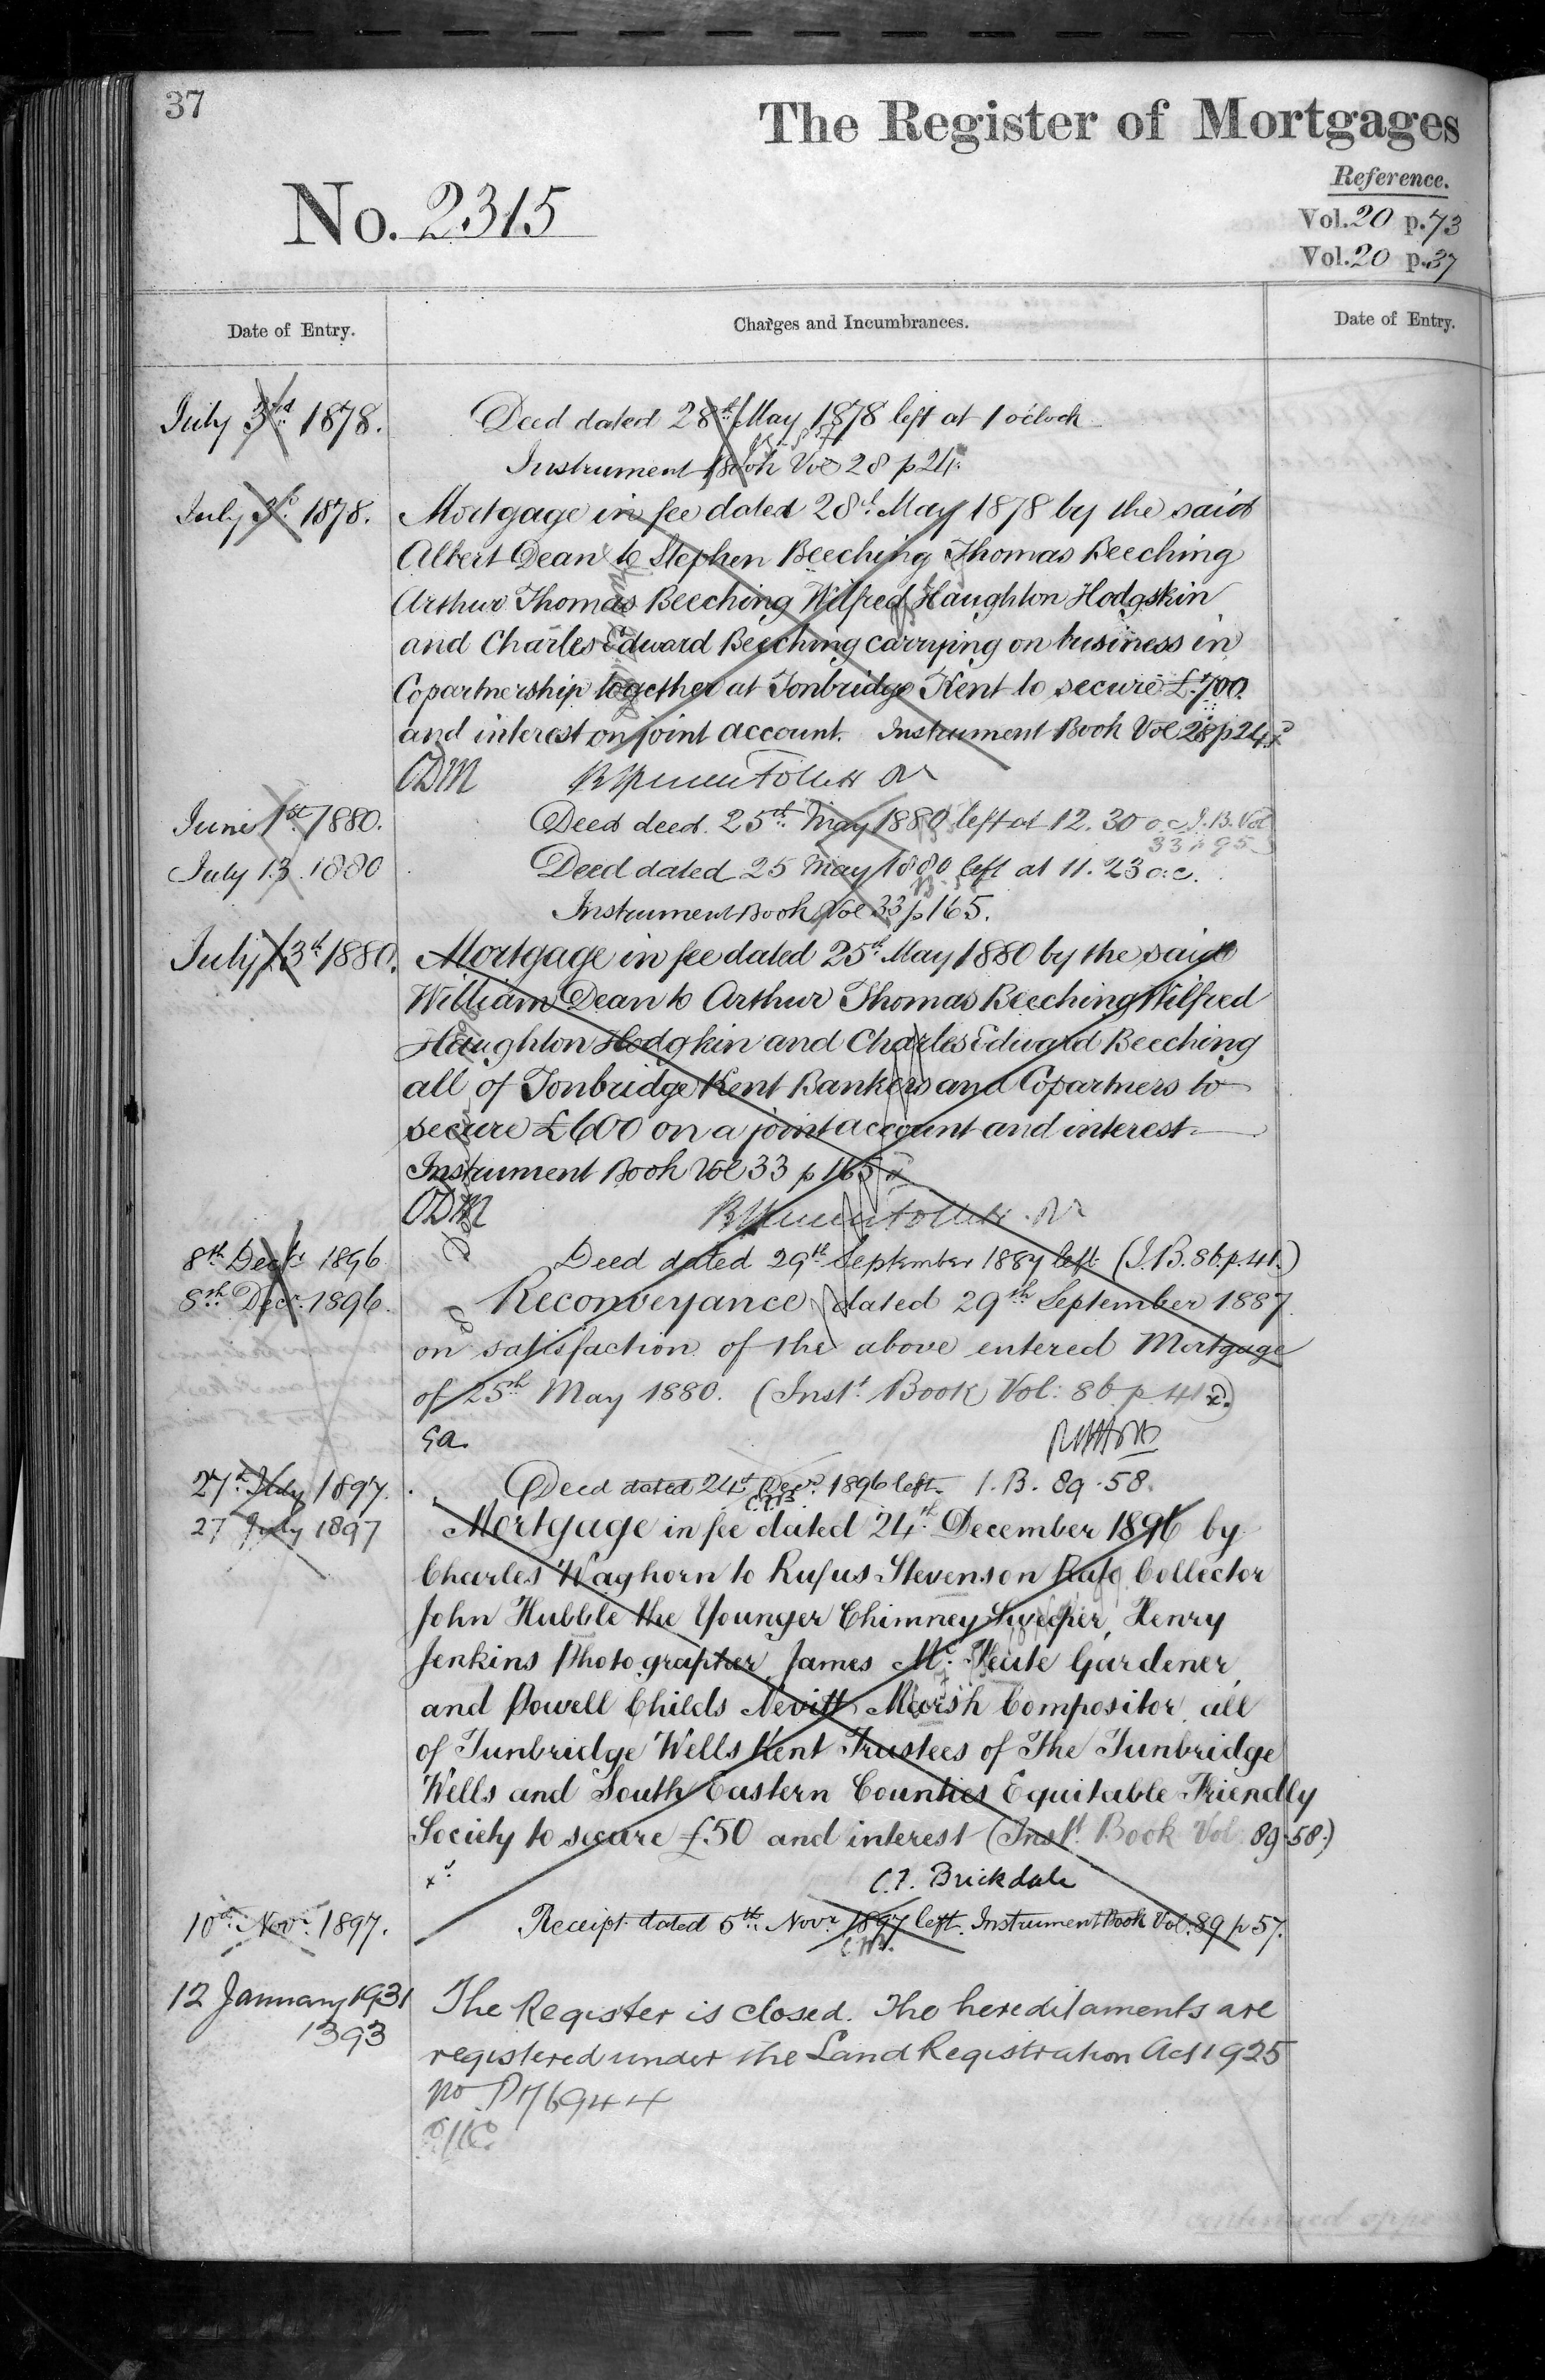 37
The Register of Mortgages
Reference.
No. 2315
Vol. 20 p. 73
Vol. 20 p. 37
Date of Entry.
Charges and Incumbrances.
Date of Entry.
July 3rd 1878.
Deed dated 28th May 1878 left at 1 o'clock
Instrument Book Vol 28 p 24.
July 3d. 1878.
Mortgage in fee dated 28th May 1878 by the said
Albert Dean to Stephen Beeching Thomas Beeching
Arthur Thomas Beeching Wilfred Haughton Hodgskin
and Charles Edward Beeching carrying on business in
Copartnership together at Tonbridge Kent to secure £700.
and interest on joint account. Instrument Book Vol 28 p 24
ODM
June 1st 1880.
Deed deed. 25th May 1880 left at 12.30 o.c I.B. Vol
33 p 95
July 13. 1880
Deed dated 25 May 1880 left at 11.23 o.c.
Instrument Book Vol 33 p 165.
July 13th 1880.
Mortgage in fee dated 25th May 1880 by the said
William Dean to Arthur Thomas Beeching Wilfred
Haughton Hodgkin and Charles Edward Beeching
all of Tonbridge Kent Bankers and Copartners to
secure £600 on a joint account and interest
Instrument Book Vol 33 p 165
ODM
8th Decr. 1896
Deed dated 29th September 1887 left (I.B. 86. p. 41.)
8th Decr. 1896.
Reconveyance dated 29th September 1887.
on satisfaction of the above entered Mortgage
of 25th May 1880. (Inst. Book Vol: 86. p. 41 x.)
27th July 1897.
Deed dated 24th Decr. 1896 left. I.B. 89.58.
C.F.B.
27 July 1897
Mortgage in fee dated 24th December 1896 by
Charles Waghorn to Rufus Stevenson Rate Collector
John Hubble the Younger Chimney Sweeper, Henry
Jenkins Photographer, James Mc. Keute Gardener,
and Powell Childs Nevitt Marsh Compositor, all
of Tunbridge Wells Kent Trustees of The Tunbridge
Wells and South Eastern Counties Equitable Friendly
Society to secure £50 and interest (Inst. Book Vol 89.58.)
C.F. Brickdale
10th Novr. 1897.
Receipt dated 5th Novr. 1897 left. Instrument Book Vol. 89 p 57.
12 January 1931
1393
The Register is closed. The hereditaments are
registered under the Land Registration Act 1925
no P176944